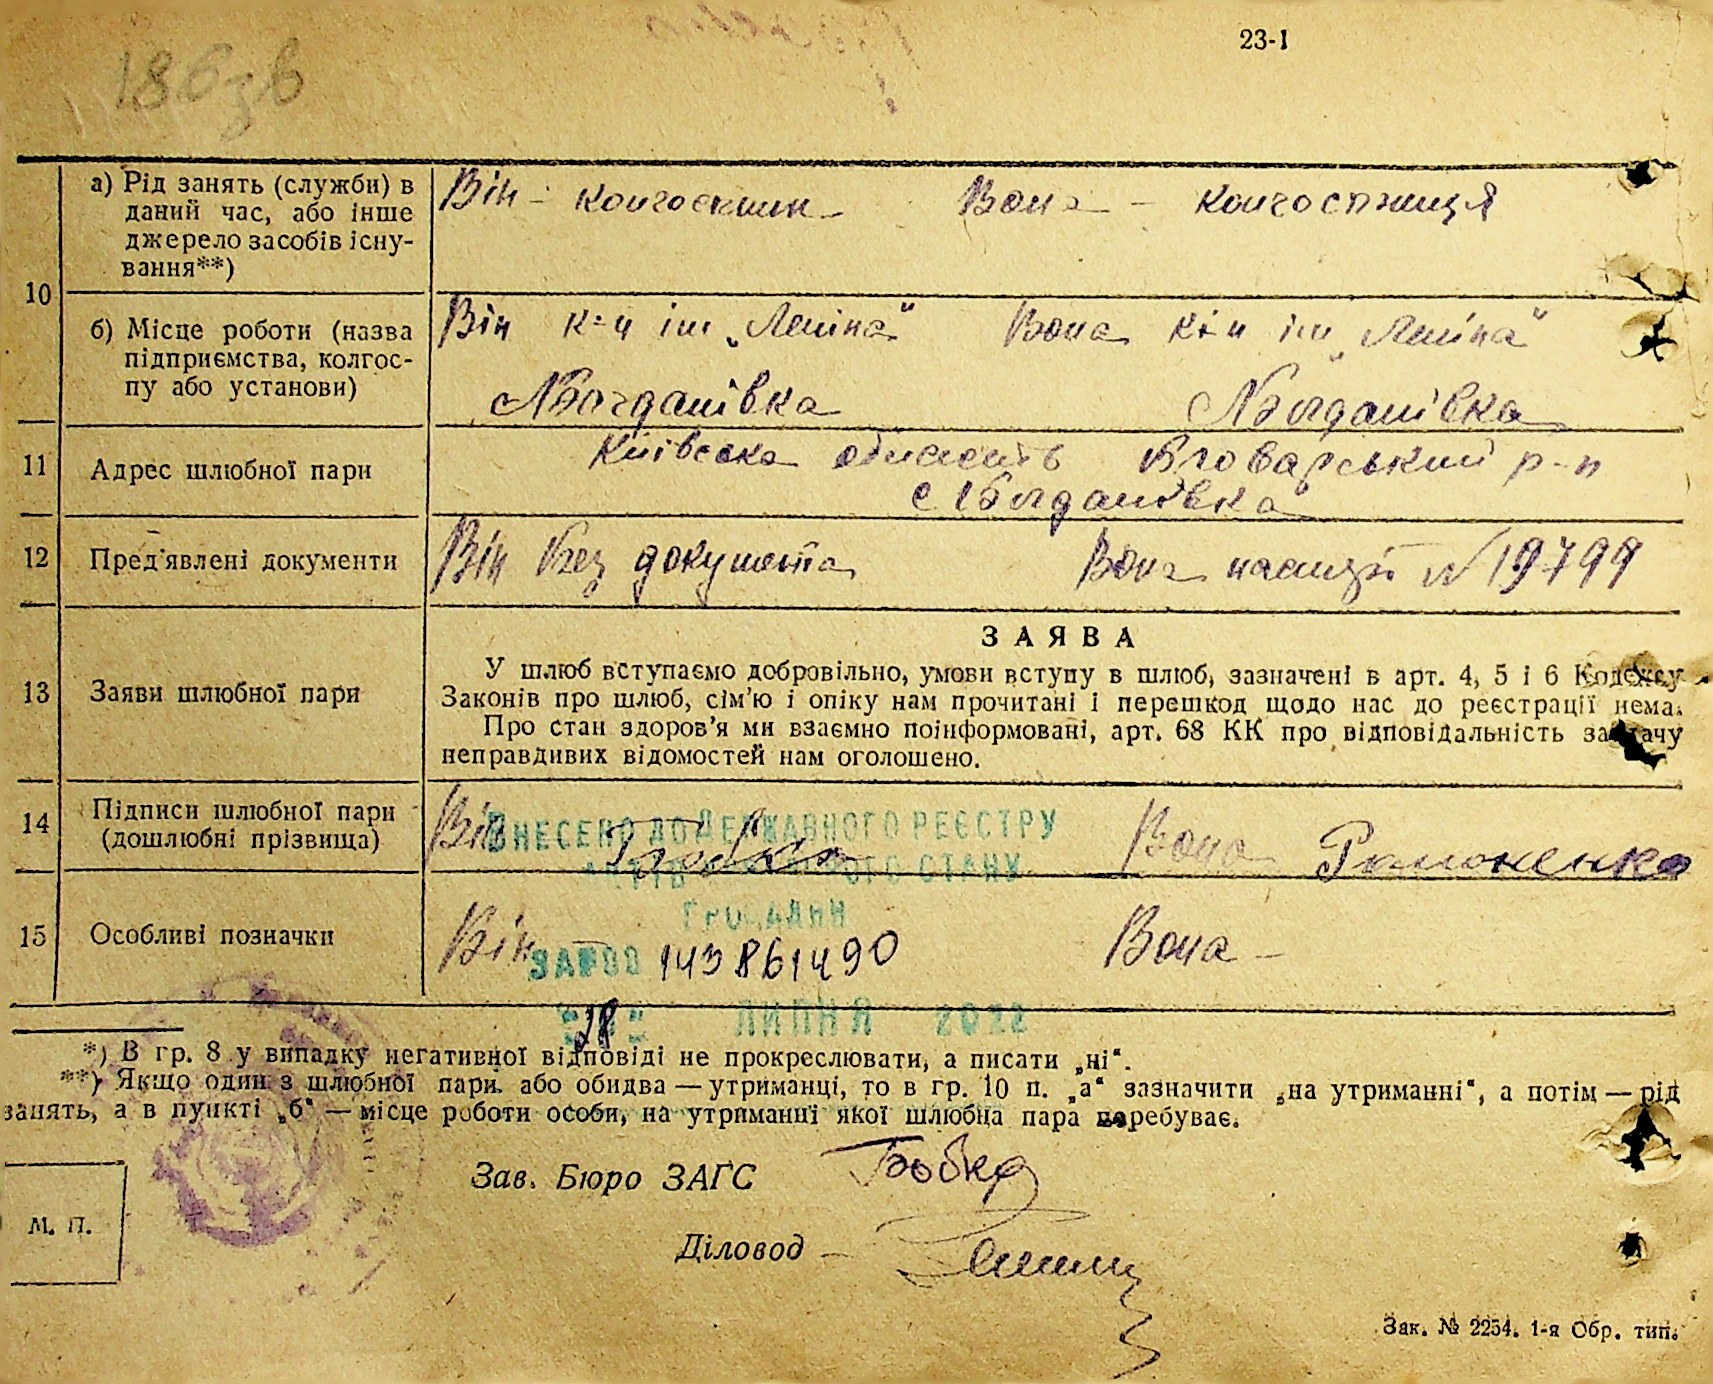 23-І
186зв
а) Рід занять (служби) в
даний час, або інше
джерело засобів існу-
вання**)
Він - колгоспник Вона - колгоспниця
10
б) Місце роботи (назва
підприємства, колгос-
пу або установи)
Він к-п ім „Леніна“ Вона к-п ім „Леніна“
с Богданівка с Богданівка
11
Адрес шлюбної пари
Київська область Броварський р-н
с Богданівка
12
Пред'явлені документи
Він без документа Вона паспорт № 19799
13
Заяви шлюбної пари
ЗАЯВА
У шлюб вступаємо добровільно, умови вступу в шлюб, зазначені в арт. 4, 5 і 6 Кодексу
Законів про шлюб, сім’ю і опіку нам прочитані і перешкод щодо нас до реєстрації нема.
Про стан здоров’я ми взаємно поінформовані, арт. 68 КК про відповідальність за дачу
неправдивих відомостей нам оголошено.
14
Підписи шлюбної пари
(дошлюбні прізвища)
Він Вона
ВНЕСЕНО ДО ДЕРЖАВНОГО РЕЄСТРУ
АКТІВ ЦИВІЛЬНОГО СТАНУ
ГРОМАДЯН
15
Особливі позначки
Він Вона -
143861490
28 ЛИПНЯ 2022
*) В гр. 8 у випадку негативної відповіді не прокреслювати, а писати „ні“.
**) Якщо один з шлюбної пари або обидва — утриманці, то в гр. 10 п. „а“ зазначити „на утриманні“, а потім — рід
занять, а в пункті „б“ — місце роботи особи, на утриманні якої шлюбна пара перебуває.
Зав. Бюро ЗАГС
М. П.
Діловод
Зак. № 2254. 1-я Обр. тип.